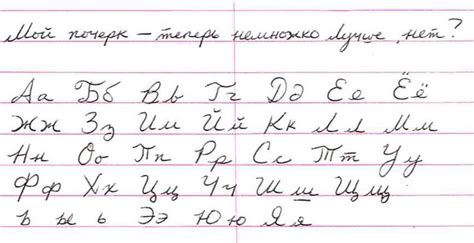 Мой почерк – теперь немножко лучше, нет?
Аа Бб Вв Гг Дд Ее Ёё
Жж Зз Ии Йй Кк Лл Мм
Нн Оо Пп Рр Сс Тт Уу
Фф Хх Цц Чч Шш Щщ
ъ ы ь Ээ Юю Яя